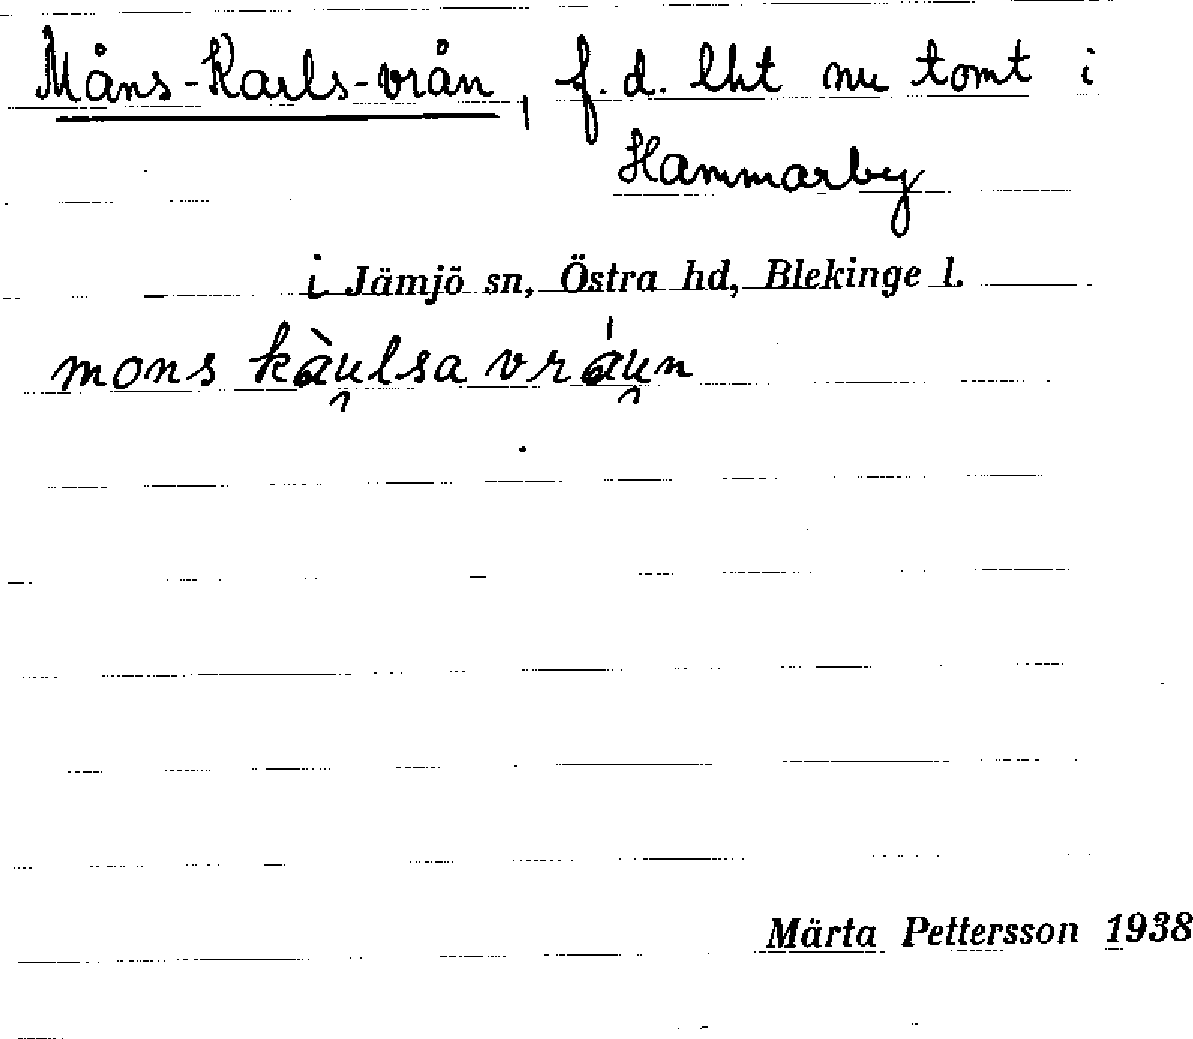 Måns-Karls-vrån, f. d. lht nu tomt i
Hammarby
i Jämjö sn, Östra hd, Blekinge l.
mons kàu̯lsa vráu̯n
Märta Pettersson 1938